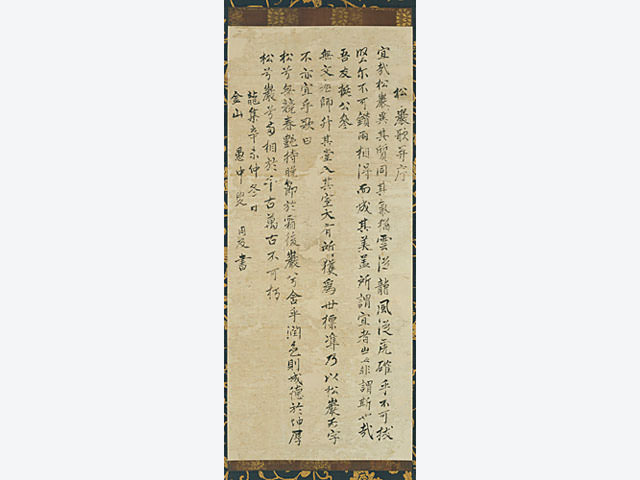 松巖歌并序
宜哉松巖異其質同其氣猶雲從龍風從虎確乎不可拔
堅尓不可鑽兩相得而成其美蓋所謂宜者也非謂斯也哉
吾友挺公參
無文禅師升其堂入其室大有所獲為世標準乃以松巖為字
不亦宜乎歌曰
松兮無競春艶持晩節於霜後巖兮含乎潤色則咸德於坤厚
松兮巖兮相於千古萬古不可朽
龍集辛未仲冬日
金山 愚中 周及書